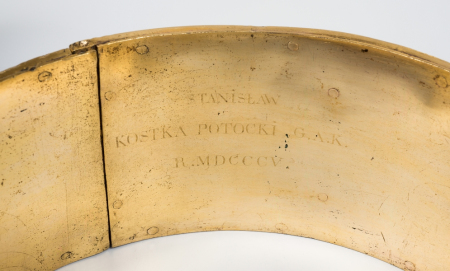 STANISŁAW
KOSTKA POTOCKI G.A.K.
R.MDCCCV